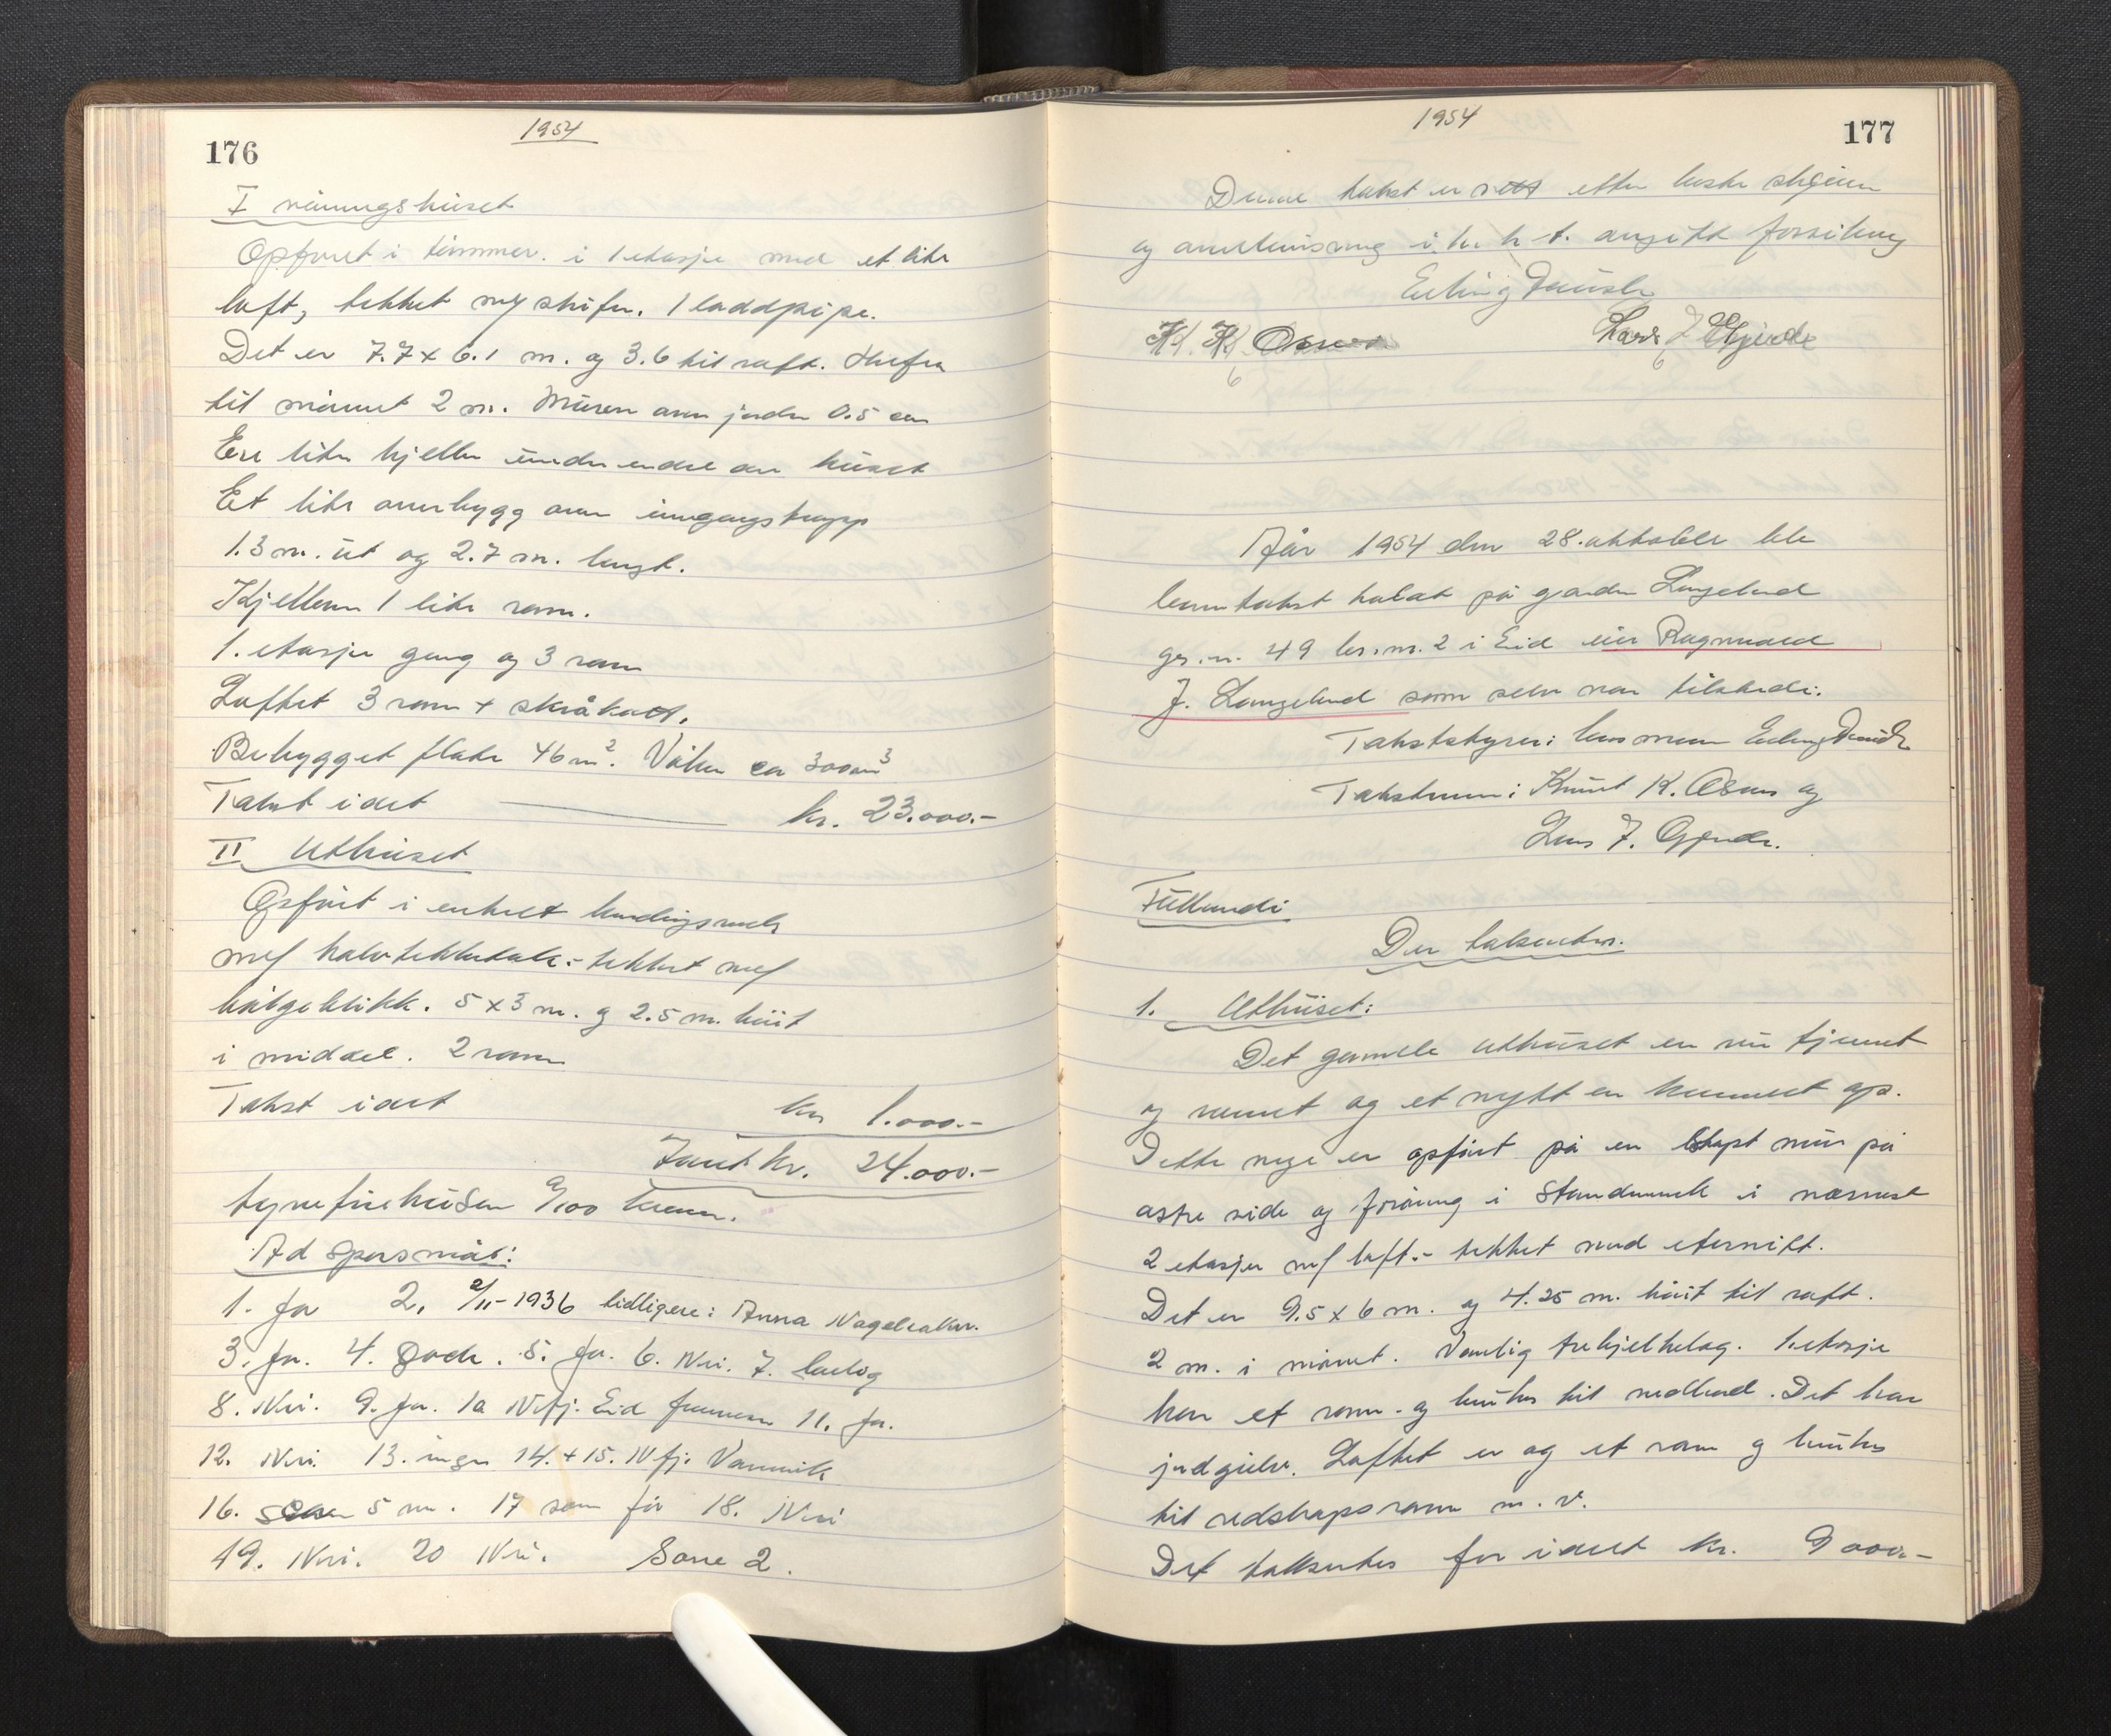 176
1954
I våningshuset
Opført i tømmer. i 1 etasje med et lite
loft, tekket m/ skifer. 1 laddpipe.
Det er 7.7 x 6.1 m. og 3.6 til raft. Herfra
til mønnet 2 m. Muren over jorden 0.5 cm
En liten kjeller under endel av huset
Et lite overbygg over inngangstrapp
1.3 m. ut og 2.7 m. langt.
Kjelleren 1 lite rom.
1. etasje gang og 3 rom
Loftet 3 rom + skråkott.
Bebygget flate 46 m². Volum ca 300 m³
Takst i alt kr. 23.000.-
II Uthuset
Opført i enkelt bindingsverk
m/ halvtekkbale:- tekket m/
bølgeblikk. 5 x 3 m. og 2.5 m. høit
i middel. 2 rom
Takst i alt kr 1.000.-
Tamt kr. 24.000.-
tyvefirehusen 0/100 kroner.
Ad spørsmål:
1. Ja 2. 2/11-1936 tidligere: Anna
3. Ja. 4. gode. 5. Ja. 6. Nei. 7.
8. Nei. 9. Ja. 10 Nifj. Eid 11. Ja.
12. Nei. 13. ingen 14. + 15. Nfj.
16. 5 m. 17 som før 18. Nei
19. Nei. 20 Nei. Sone 2.
1954
177
Denne takst er sett etter beste skjønn
og overbevisning i h. h. t. avgitt forsikring
Erling
K. K. Osmo Lars J Gjerde
År 1954 den 28. oktober ble
branntakst holdt på garden Langeland
gr. nr. 49 br. nr. 2 i Eid eier Ragnvald
J. Langeland som selv var tilstede:
Takststyrer: lensmann Erling
Takstmenn: Knut K. Osmo og
Lars J. Gjerde.
Følbundi
Der taksertes.
1. Uthuset:
Det gamle uthuset er nu fjernet
og revet og et nytt er kommet op.
Dette nye er opført på en støpt mur på
østre side og forøvrig i standverk i nærmest
2 etasjer m/ loft.- tekket med eternitt.
Det er 9.5 x 6 m. og 4.25 m. høit til raft.
2 m. i mønet. Vanlig trebjelkelag. 1. etasje
har et rom. og brukes til vedbod. Det har
jordgulv. Loftet er og et rom og brukes
til redskapsrom m. v.
Det takseres for i alt kr. 9 000.-